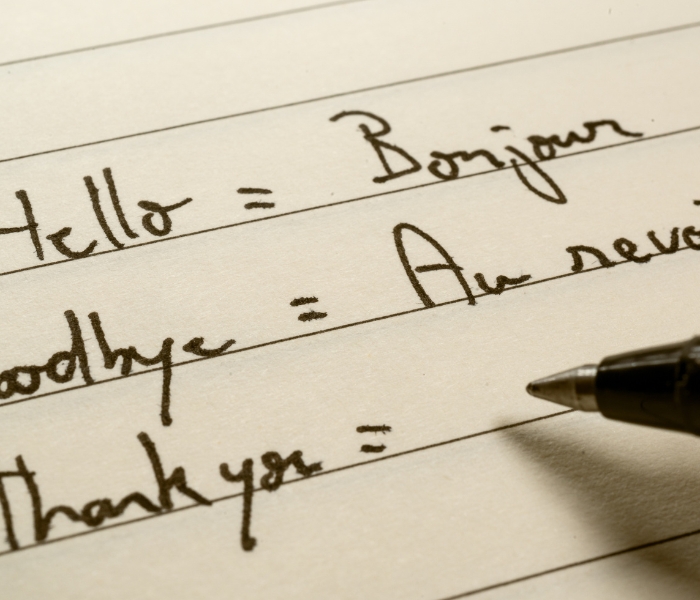 Hello = Bonjour
oodbye = Au revoi
Thank you =